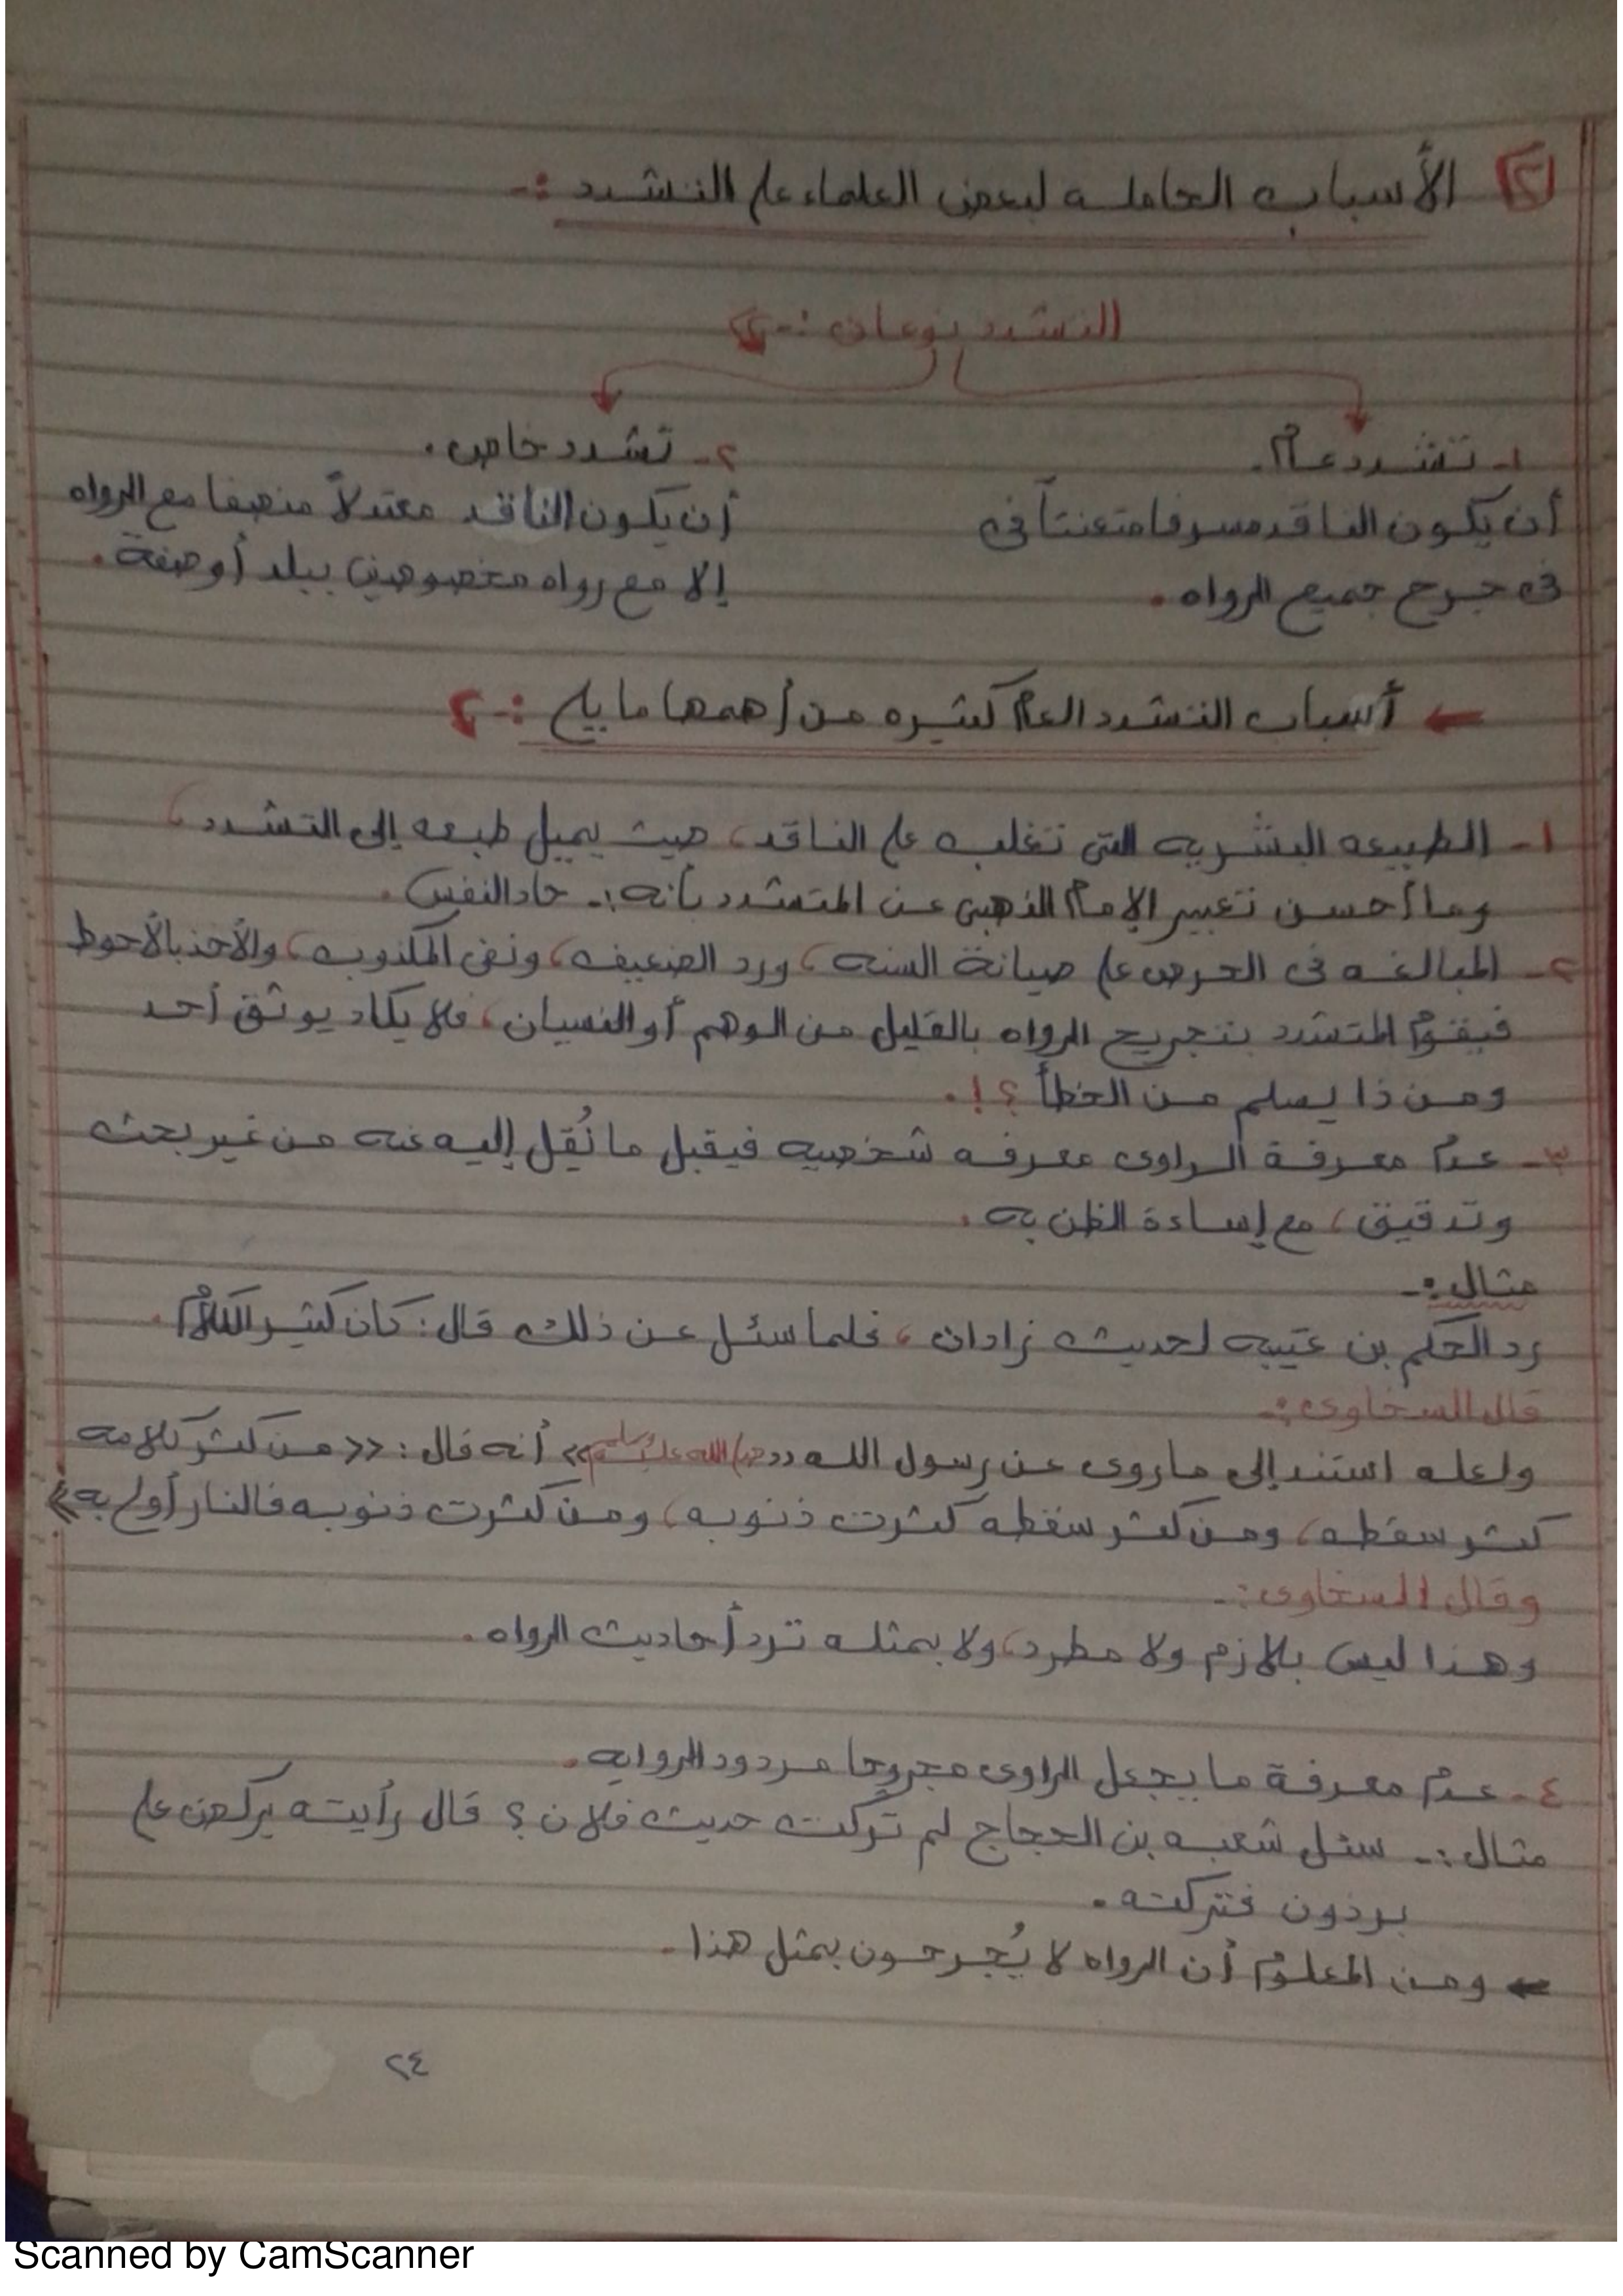 ٢ الأسباب الحامله لبعض العلماء على التشدد :-
التشدد نوعان :-
١- تشدد عام.
أن يكون الناقد مسرفا متعنتاً في
في جرح جميع الرواه.
٢- تشدد خاص.
أن يكون الناقد معتدلاً منصفا مع الرواه
إلا مع رواه مخصوصين ببلد أو صفة.
← أسباب التشدد العام كثيره من أهمها ما يلي :-
١- الطبيعه البشريه التي تغلب على الناقد، حيث يميل طبعه إلى التشدد،
وما أحسن تعبير الإمام الذهبي عن المتشدد بأنه :- حاد النفس.
٢- المبالغه في الحرص على صيانة السنه، ورد الضعيف، ونفى المكذوب، والأخذ بالأحوط
فيقوم المتشدد بتجريح الرواه بالقليل من الوهم أو النسيان، فلا يكاد يوثق أحد
ومن ذا يسلم من الخطأ ؟!.
٣- عدم معرفة الراوى معرفه شخصيه فيقبل ما نُقل إليه عنه من غير بحث
وتدقيق، مع إساءة الظن به.
مثال :-
رد الحكم بن عتيبه لحديث زادان، فلما سئل عن ذلك قال: كان كثير الكلام.
قال السخاوى :-
ولعله استند إلى ما روى عن رسول الله «صلى الله عليه وسلم» أنه قال: «من كثر كلامه
كثر سقطه، ومن كثر سقطه كثرت ذنوبه، ومن كثرت ذنوبه فالنار أولى به»
وقال السخاوى :-
وهذا ليس بلازم ولا مطرد، ولا بمثله ترد أحاديث الرواه.
٤- عدم معرفة ما يجعل الراوى مجروحا مردود الروايه.
مثال :- سئل شعبه بن الحجاج لم تركت حديث فلان ؟ قال رأيته يركض على
برذون فتركته.
← ومن المعلوم أن الرواه لا يُجرحون بمثل هذا.
٢٤
Scanned by CamScanner